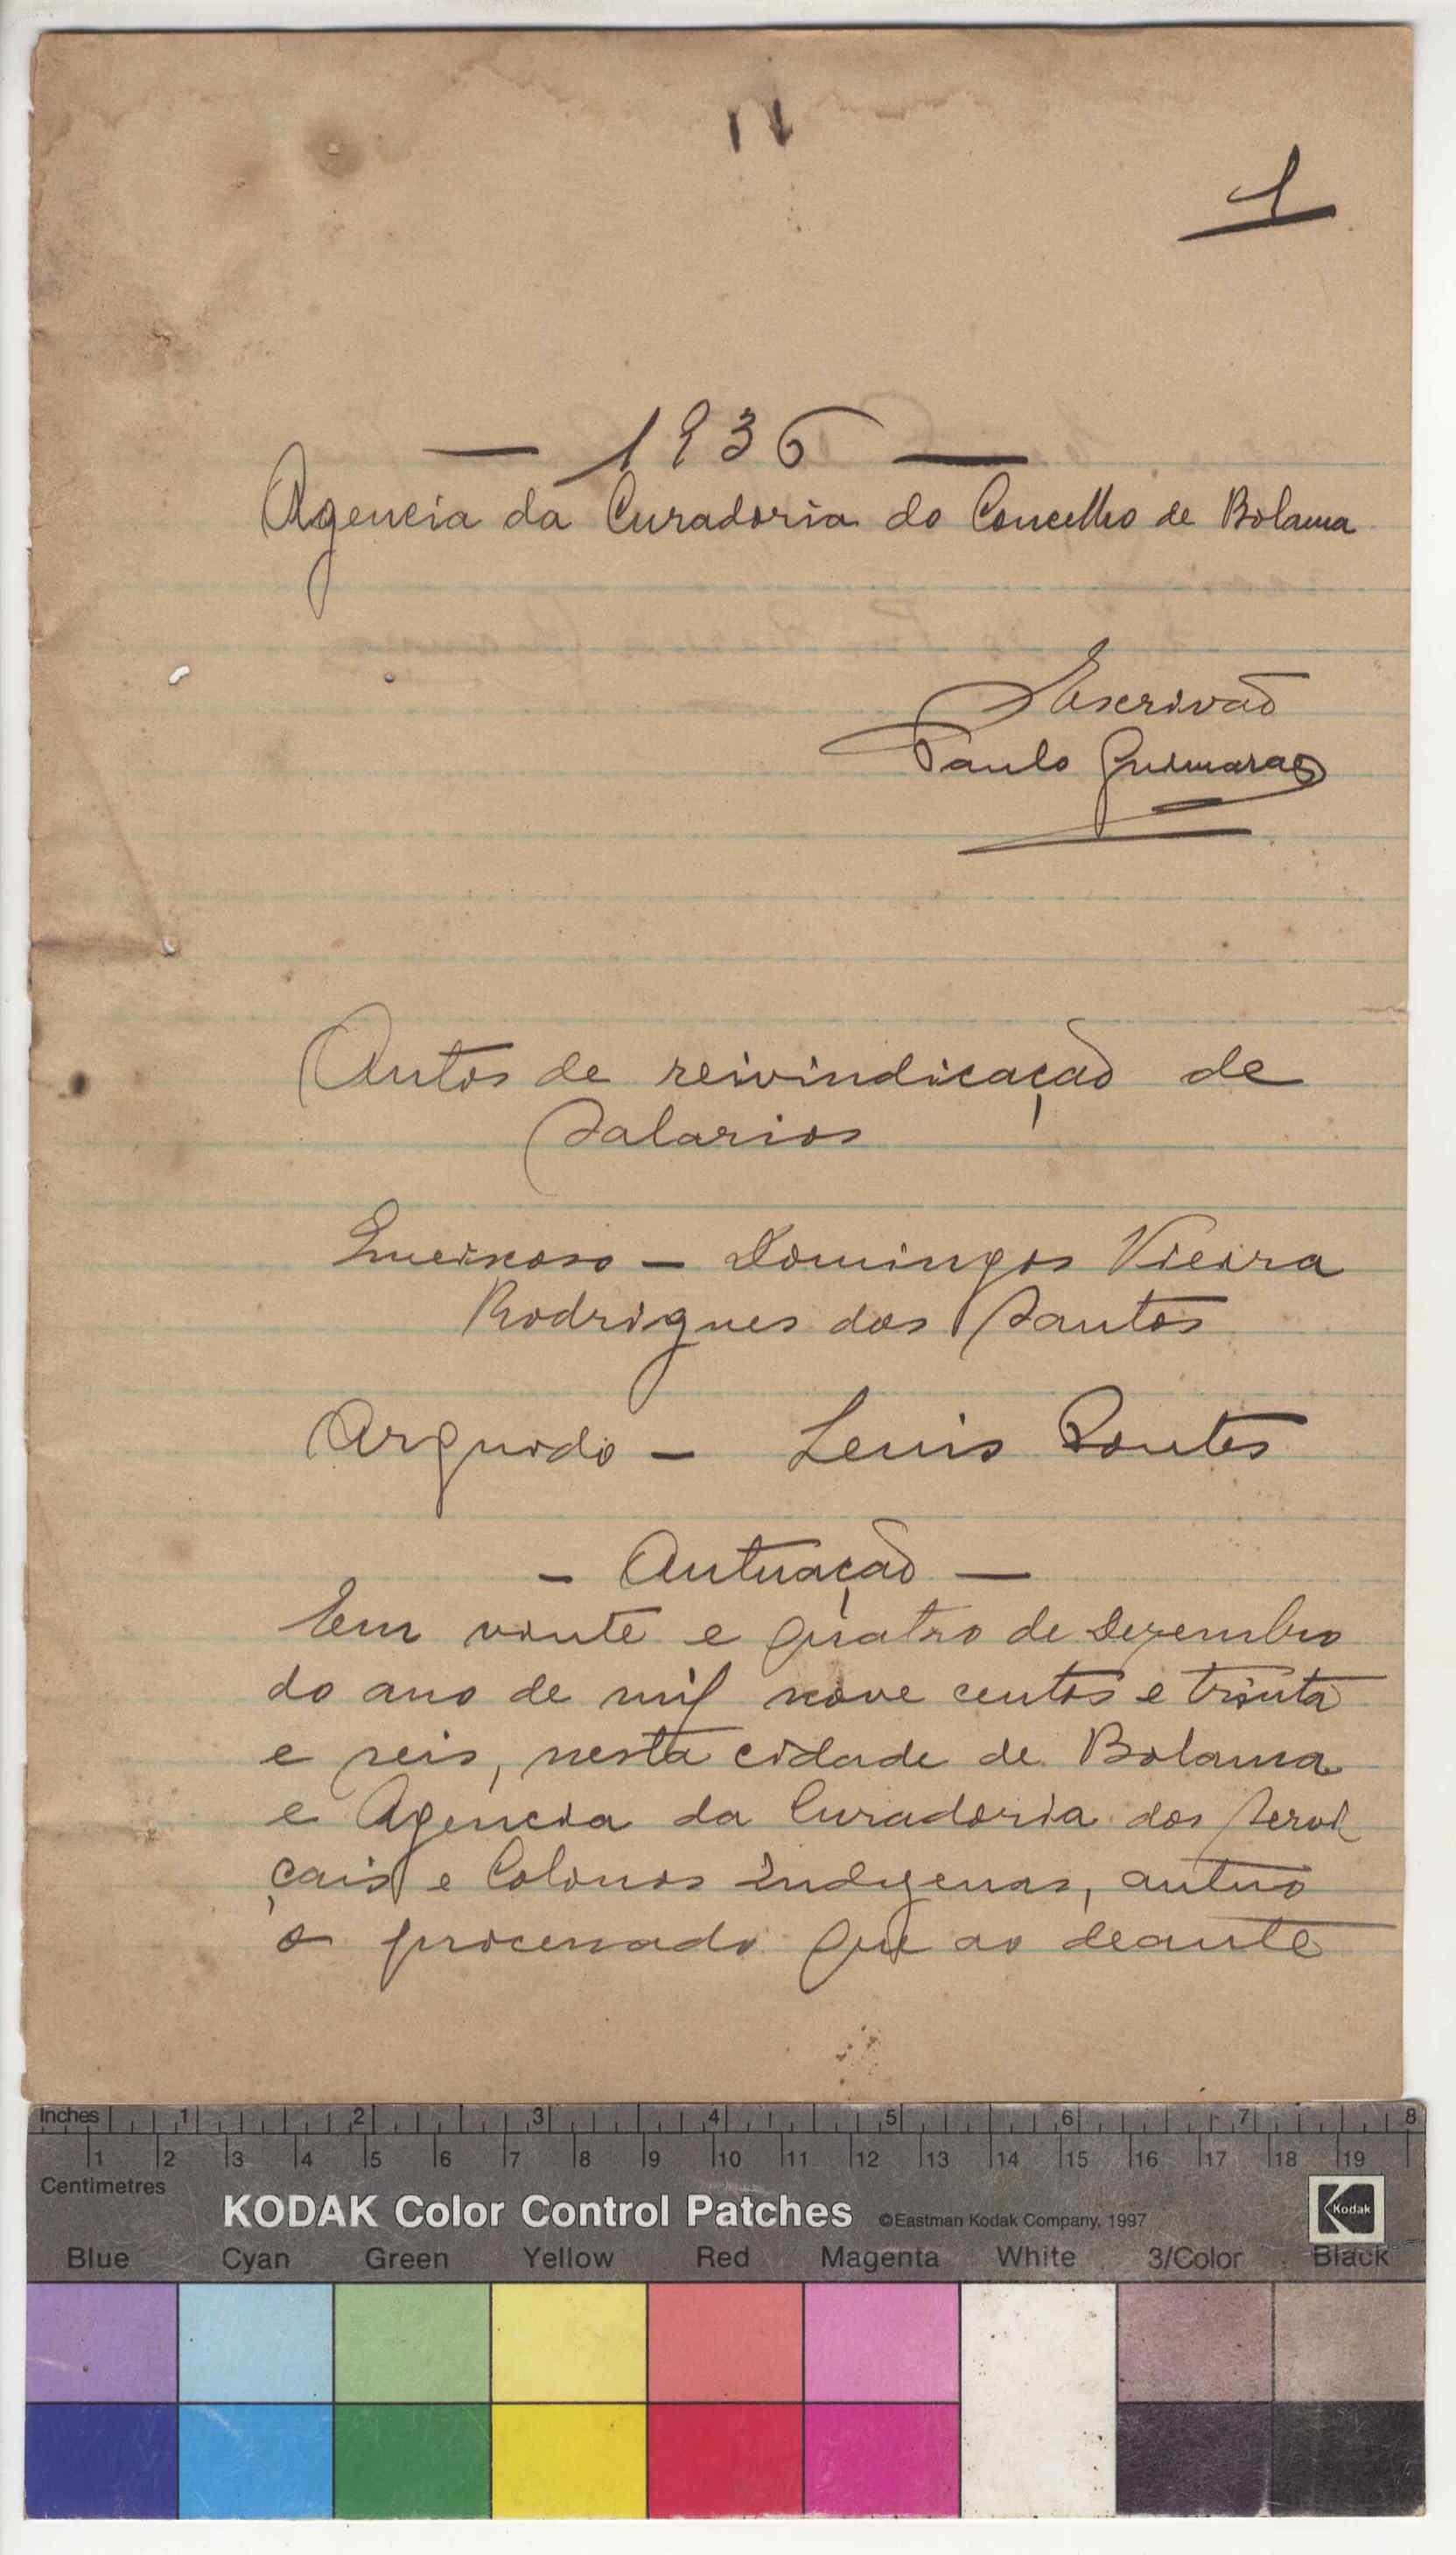 1
— 1936 —
Agencia da Curadoria do Concelho de Bolama
Escrivão
Paulo Guimarães
Autos de reivindicação de
salarios
Queixoso — Domingos Vieira
Rodrigues dos Santos
Arguido — Lewis Pontes
— Autuação —
Em vinte e quatro de Dezembro
do ano de mil nove centos e trinta
e seis, nesta cidade de Bolama
e Agencia da Curadoria dos Servi
çais e Colonos Indigenas, autuo
o processado que ao deante
Inches 1 2 3 4 5 6 7 8
1 2 3 4 5 6 7 8 9 10 11 12 13 14 15 16 17 18 19
Centimetres
KODAK Color Control Patches ©Eastman Kodak Company, 1997 Kodak
Blue Cyan Green Yellow Red Magenta White 3/Color Black